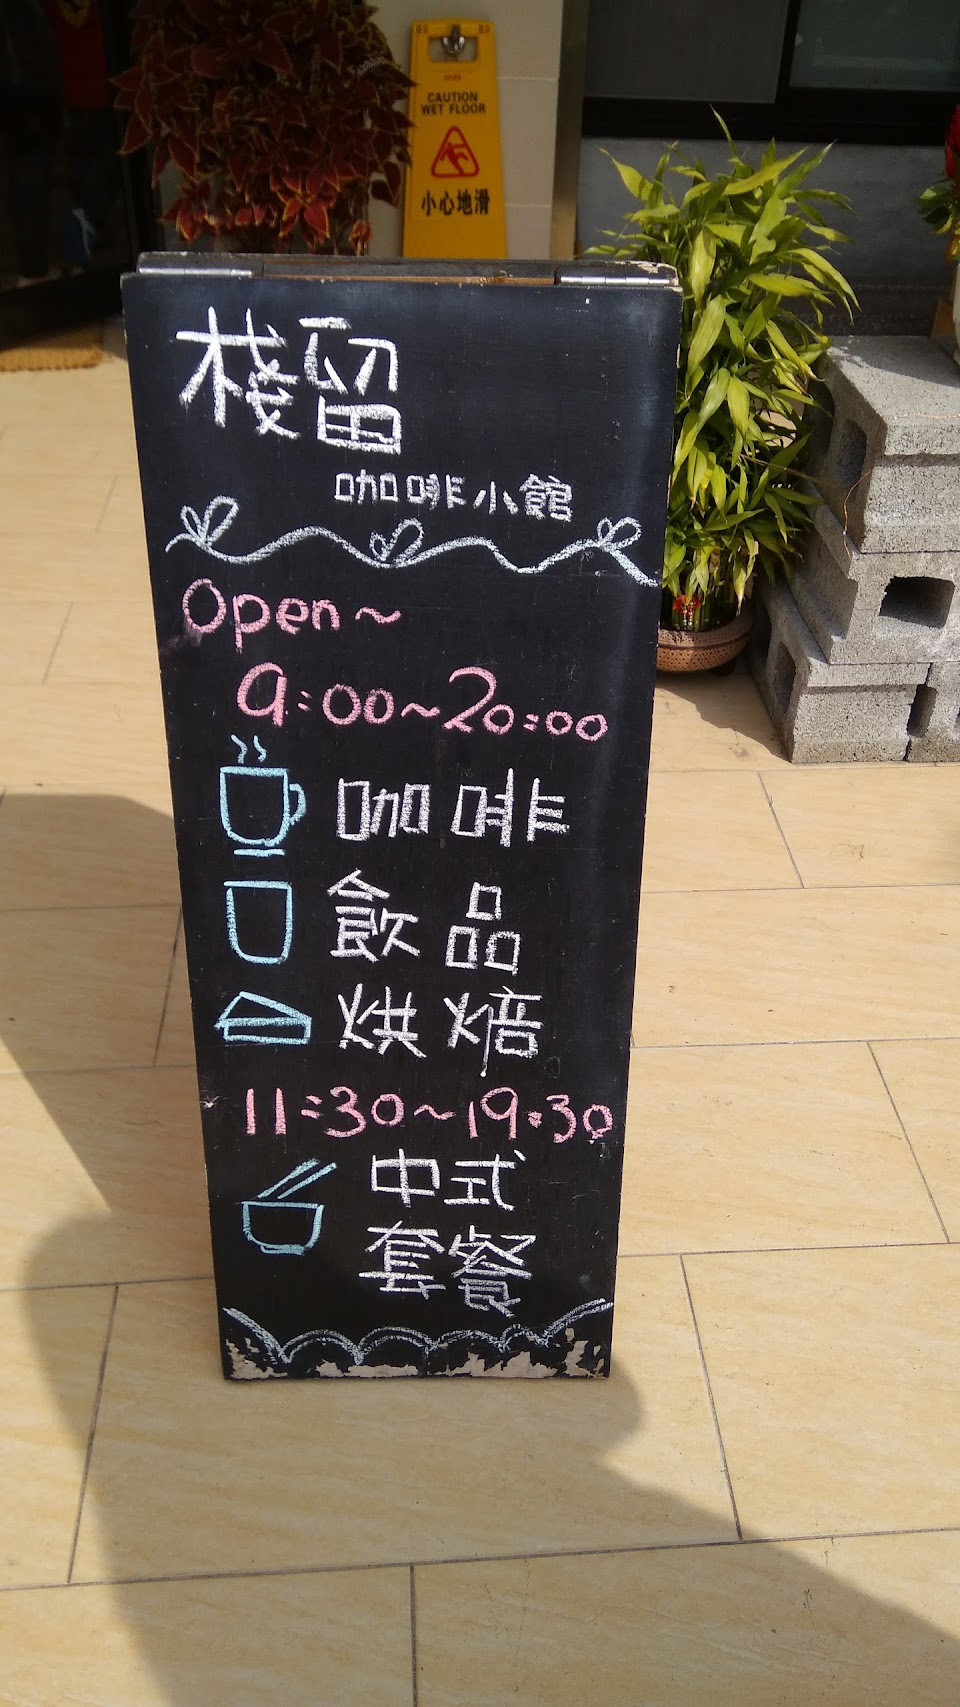 CAUTION
WET FLOOR
小心地滑
棧留
咖啡小館
Open~
9:00~20:00
咖啡
飲品
烘焙
11:30~19:30
中式
套餐